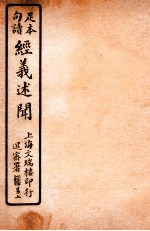 足本
句讀
經義述聞
上海文瑞樓印行